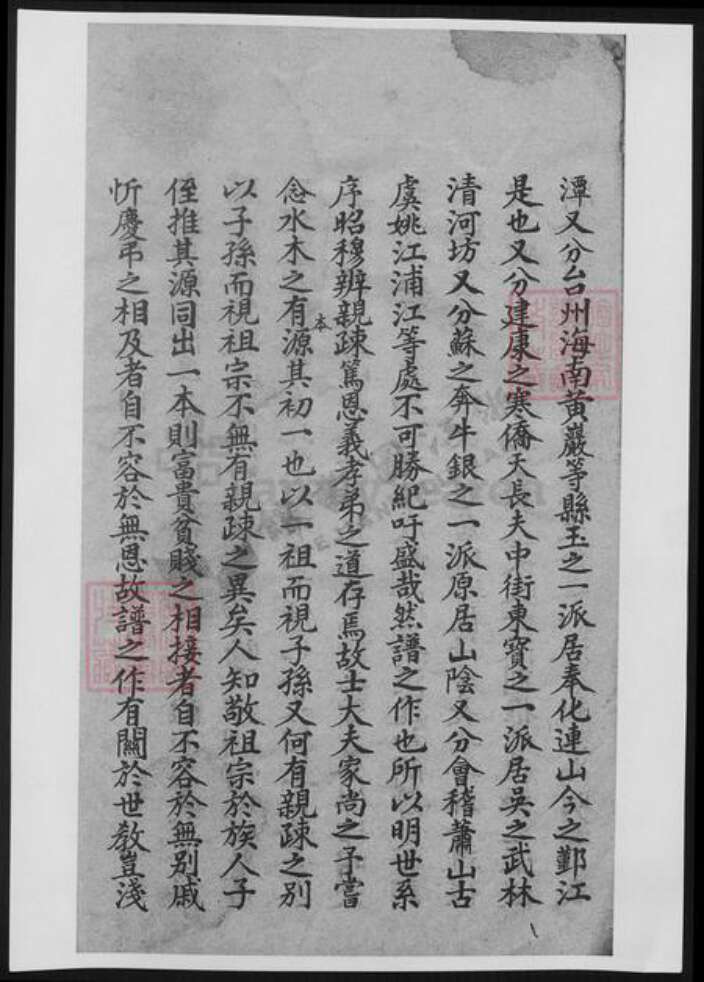 潭又分台州海南黄巖等縣玉之一派居奉化連山今之鄞江
是也又分建康之寒僑天長夫中街東寳之一派居吳之武林
清河坊又分蘇之奔牛銀之一派原居山陰又分會稽蕭山古
虞姚江浦江等處不可勝紀吁盛哉然譜之作也所以明世系
序昭穆辨親疎篤恩義孝弟之道存焉故士大夫家尚之予嘗
念水木之有源本其初一也以一祖而視子孫又何有親疎之别
以子孫而視祖宗不無有親疎之異矣人知敬祖宗於族人子
侄推其源同出一本則富貴貧賤之相接者自不容於無别戚
忻慶弔之相及者自不容於無恩故譜之作有關於世教豈淺